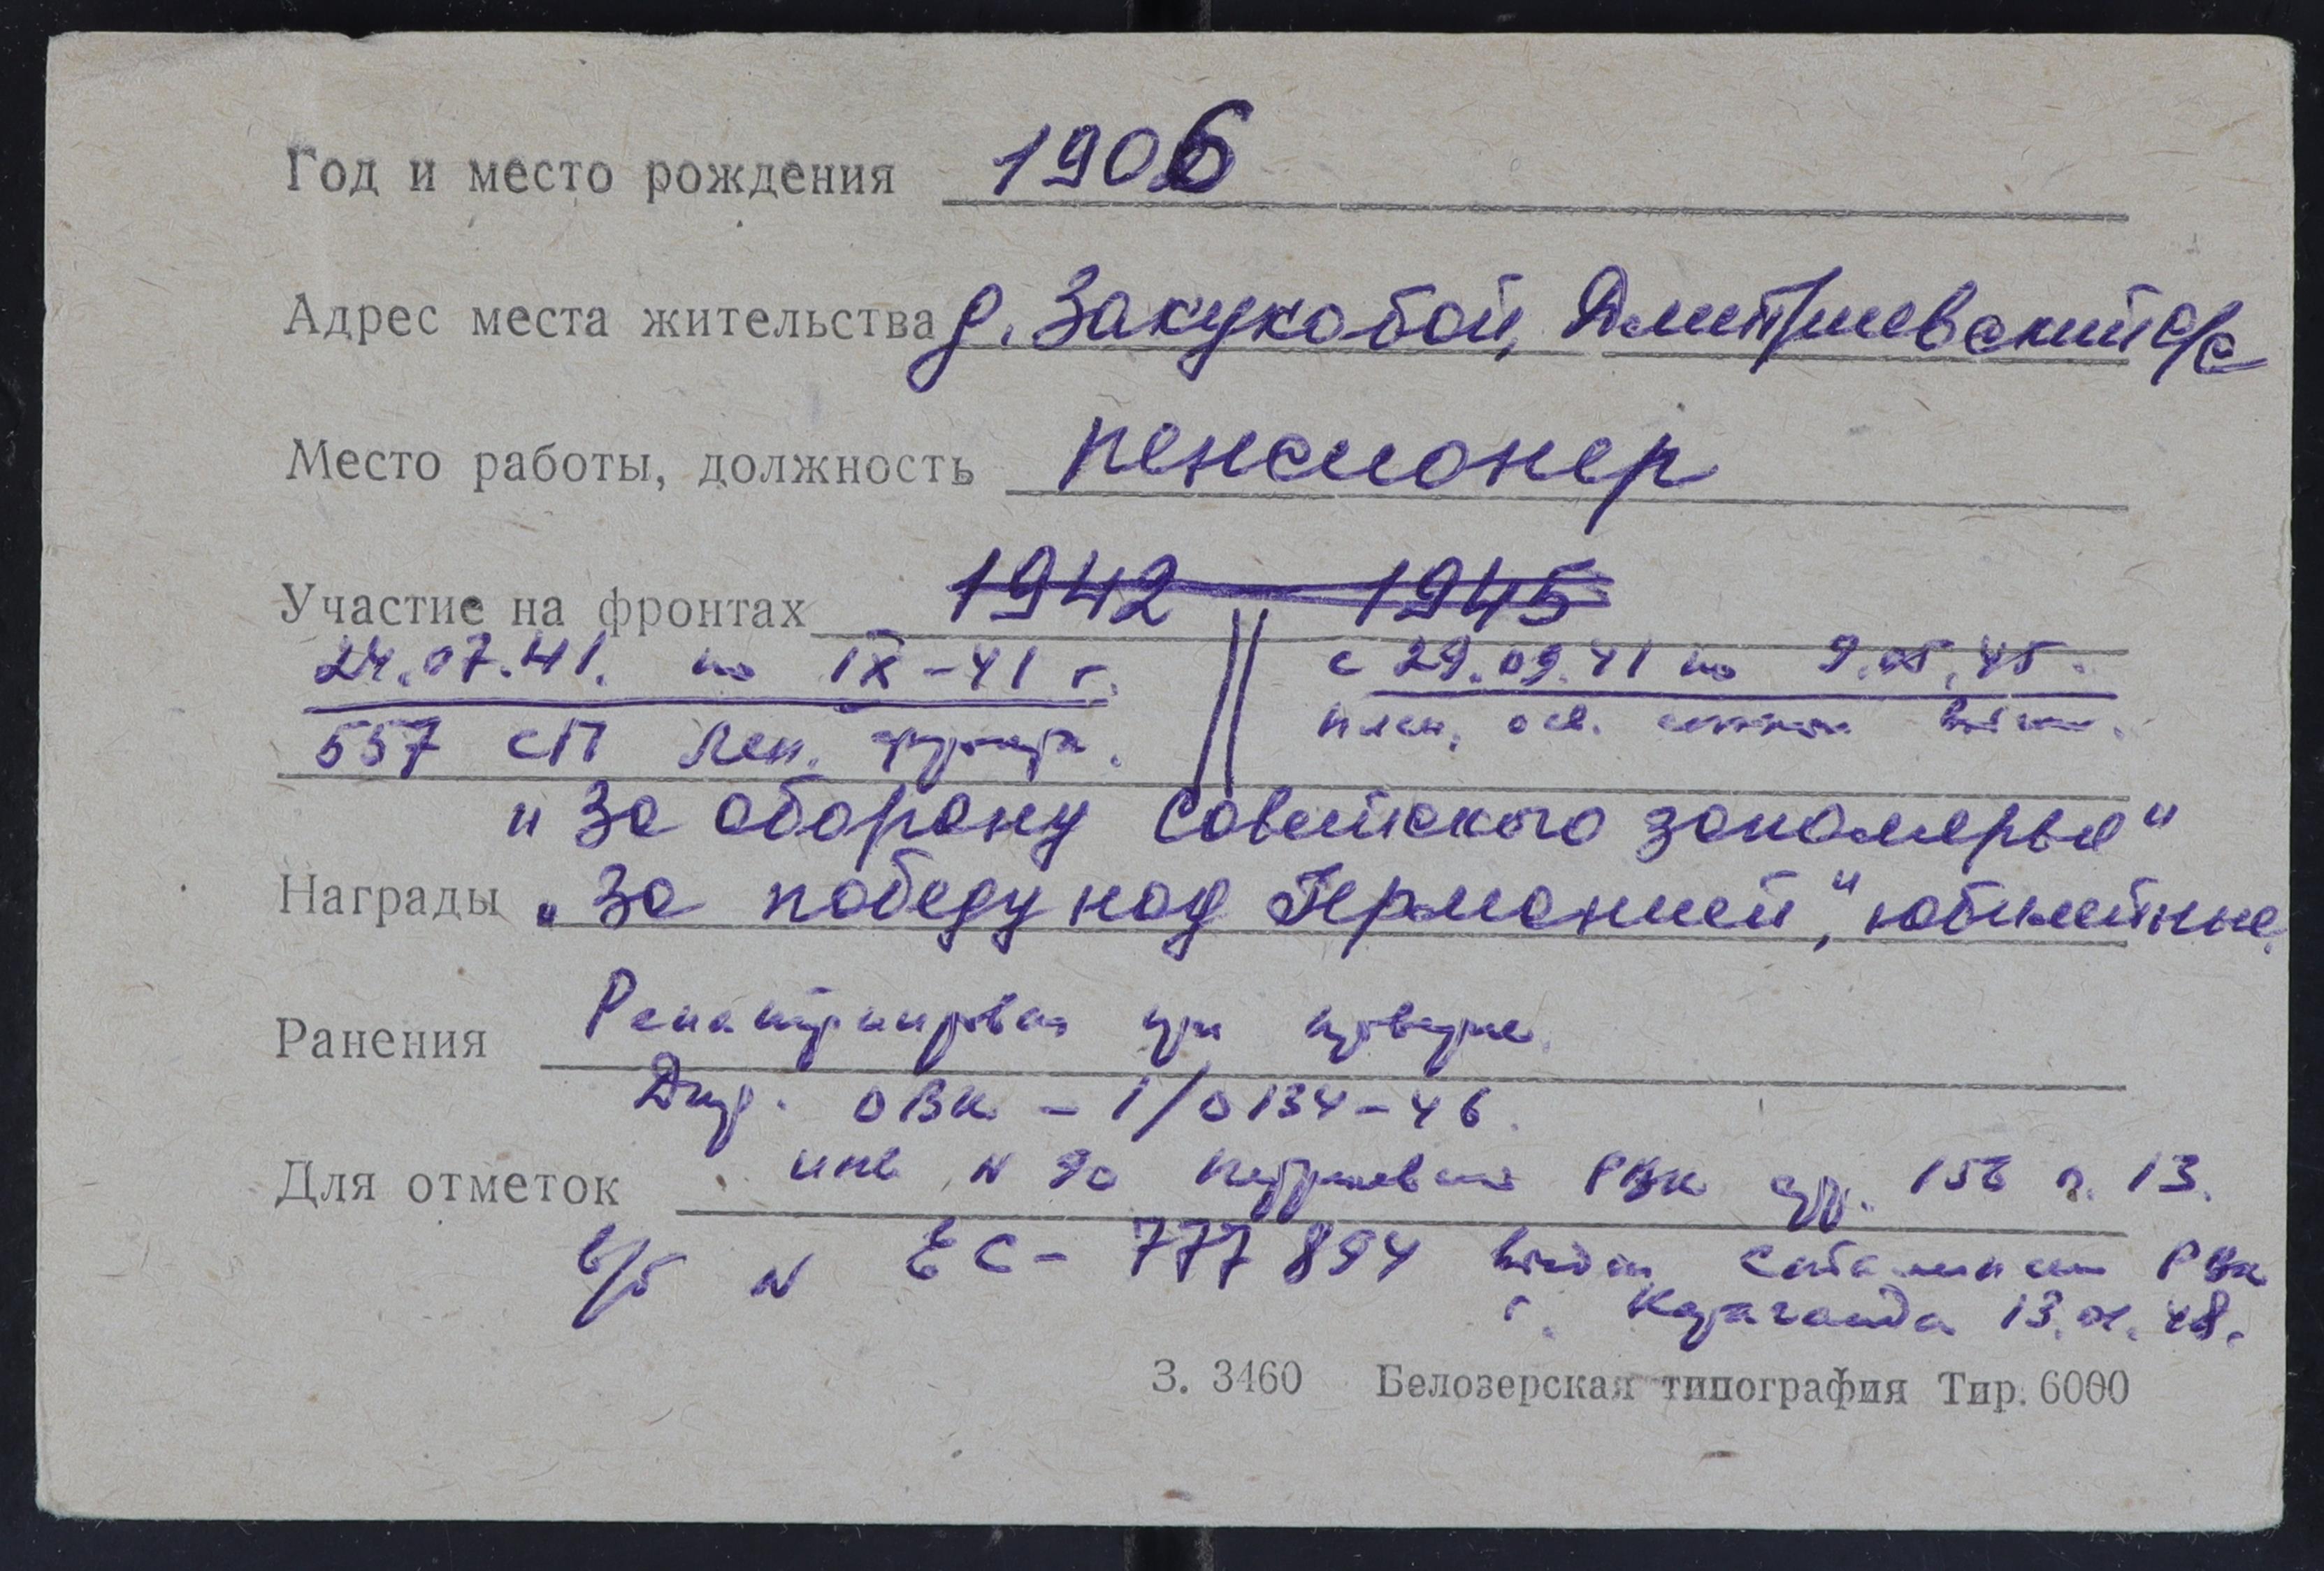 Год и место рождения 1906
Адрес места жительства д. Закукобой, Дмитриевский с/с
Место работы, должность пенсионер
Участие на фронтах 1942 — 1945
24.07.41. по IX-41 г. с 29.09.41 по 9.05.45.
557 сп Лен. фронта. плен, осв.
"За оборону Советского заполярья"
Награды "За победу над Германией", юбилейные
Ранения Репатриирован при проверке.
Дир. ОВК - 1/0134-46.
Для отметок инв N 90 РВК стр. 156 п. 13.
в/б N ЕС- 777894 выдан РВК
г. Караганда 13.01.48.
З. 3460 Белозерская типография Тир. 6000